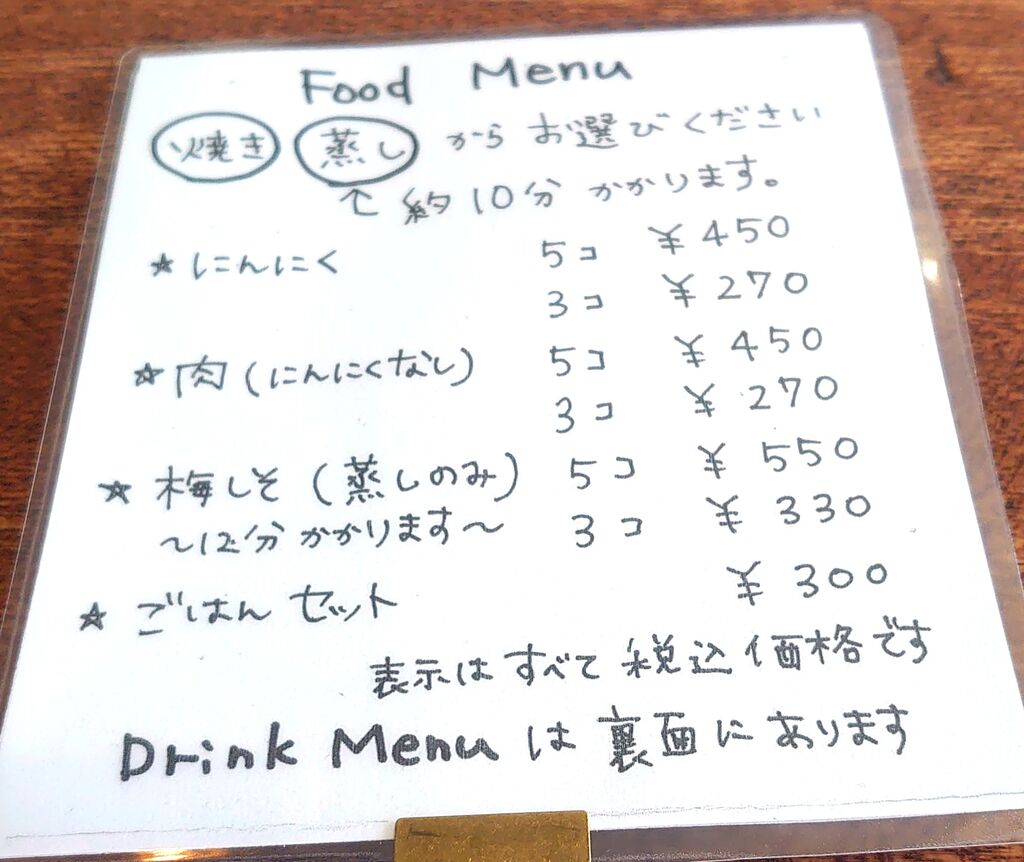 Food Menu
焼き 蒸し からお選びください
↑ 約10分かかります。
☆ にんにく 5コ ¥450
3コ ¥270
☆ 肉(にんにくなし) 5コ ¥450
3コ ¥270
☆ 梅しそ(蒸しのみ) 5コ ¥550
〜12分かかります〜 3コ ¥330
☆ ごはんセット ¥300
表示はすべて税込価格です
Drink Menuは裏面にあります